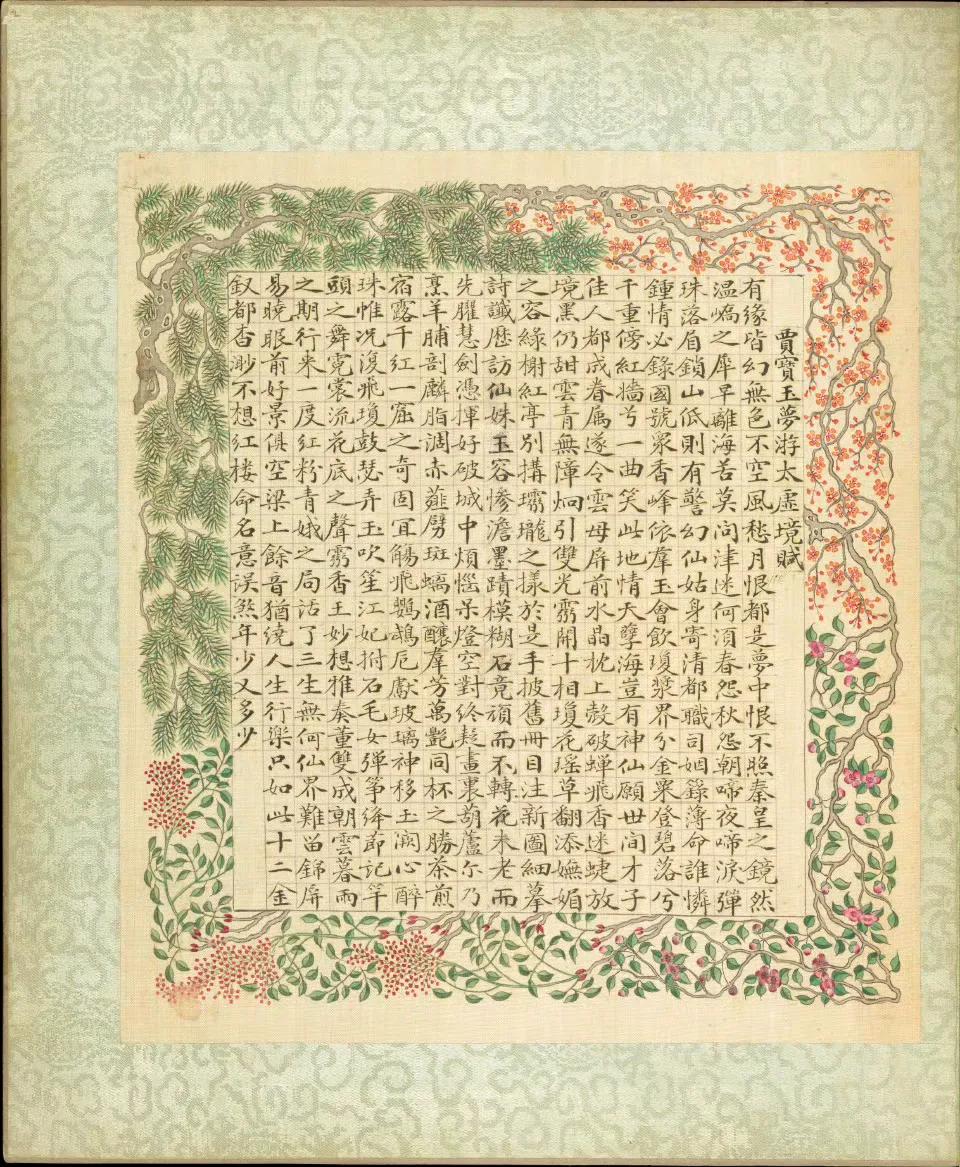 賈寶玉夢游太虛境賦
有緣皆幻無色不空風愁月恨都是夢中恨不照秦皇之鏡然
溫嶠之犀早離海苦莫問津迷何須春怨秋怨朝啼夜啼淚彈
珠落眉鎖山低則有警幻仙姑身寄清都職司姻錄薄命誰憐
鍾情必錄國號衆香峰依羣玉會飲瓊漿界分金粟登碧落兮
千重傍紅牆兮一曲笑此地情天孽海豈有神仙願世間才子
佳人都成眷屬遂令雲母屏前水晶枕上殼破蟬飛香迷蜨放
境黑仍甜雲青無障炯引雙光霱開十相瓊花瑶草翻添嫵媚
之容綠榭紅亭別搆瓏瓏之樣於是手披舊冊目注新圖細摹
詩讖歷訪仙姝玉容慘澹墨蹟模糊石竟頑而不轉花未老而
先臞慧劍憑揮好破城中煩惱呆燈空對終疑畫裏葫蘆尓乃
烹羊脯剖麟脂澗赤薤劈斑螭酒釀羣芳萬艷同杯之勝茶煎
宿露千紅一窟之奇固宜觴飛鸚鵡卮獻玻璃神移玉闕心醉
珠帷况復飛瓊鼓瑟弄玉吹笙江妃拊石毛女彈箏絳節記竿
頭之舞霓裳流花底之聲霱香王妙想雅奏董雙成朝雲暮雨
之期行来一度紅粉青娥之局話了三生無何仙界難留錦屏
易曉眼前好景俱空梁上餘音猶繞人生行樂只如此十二金
釵都杳渺不想紅樓命名意誤煞年少又多少